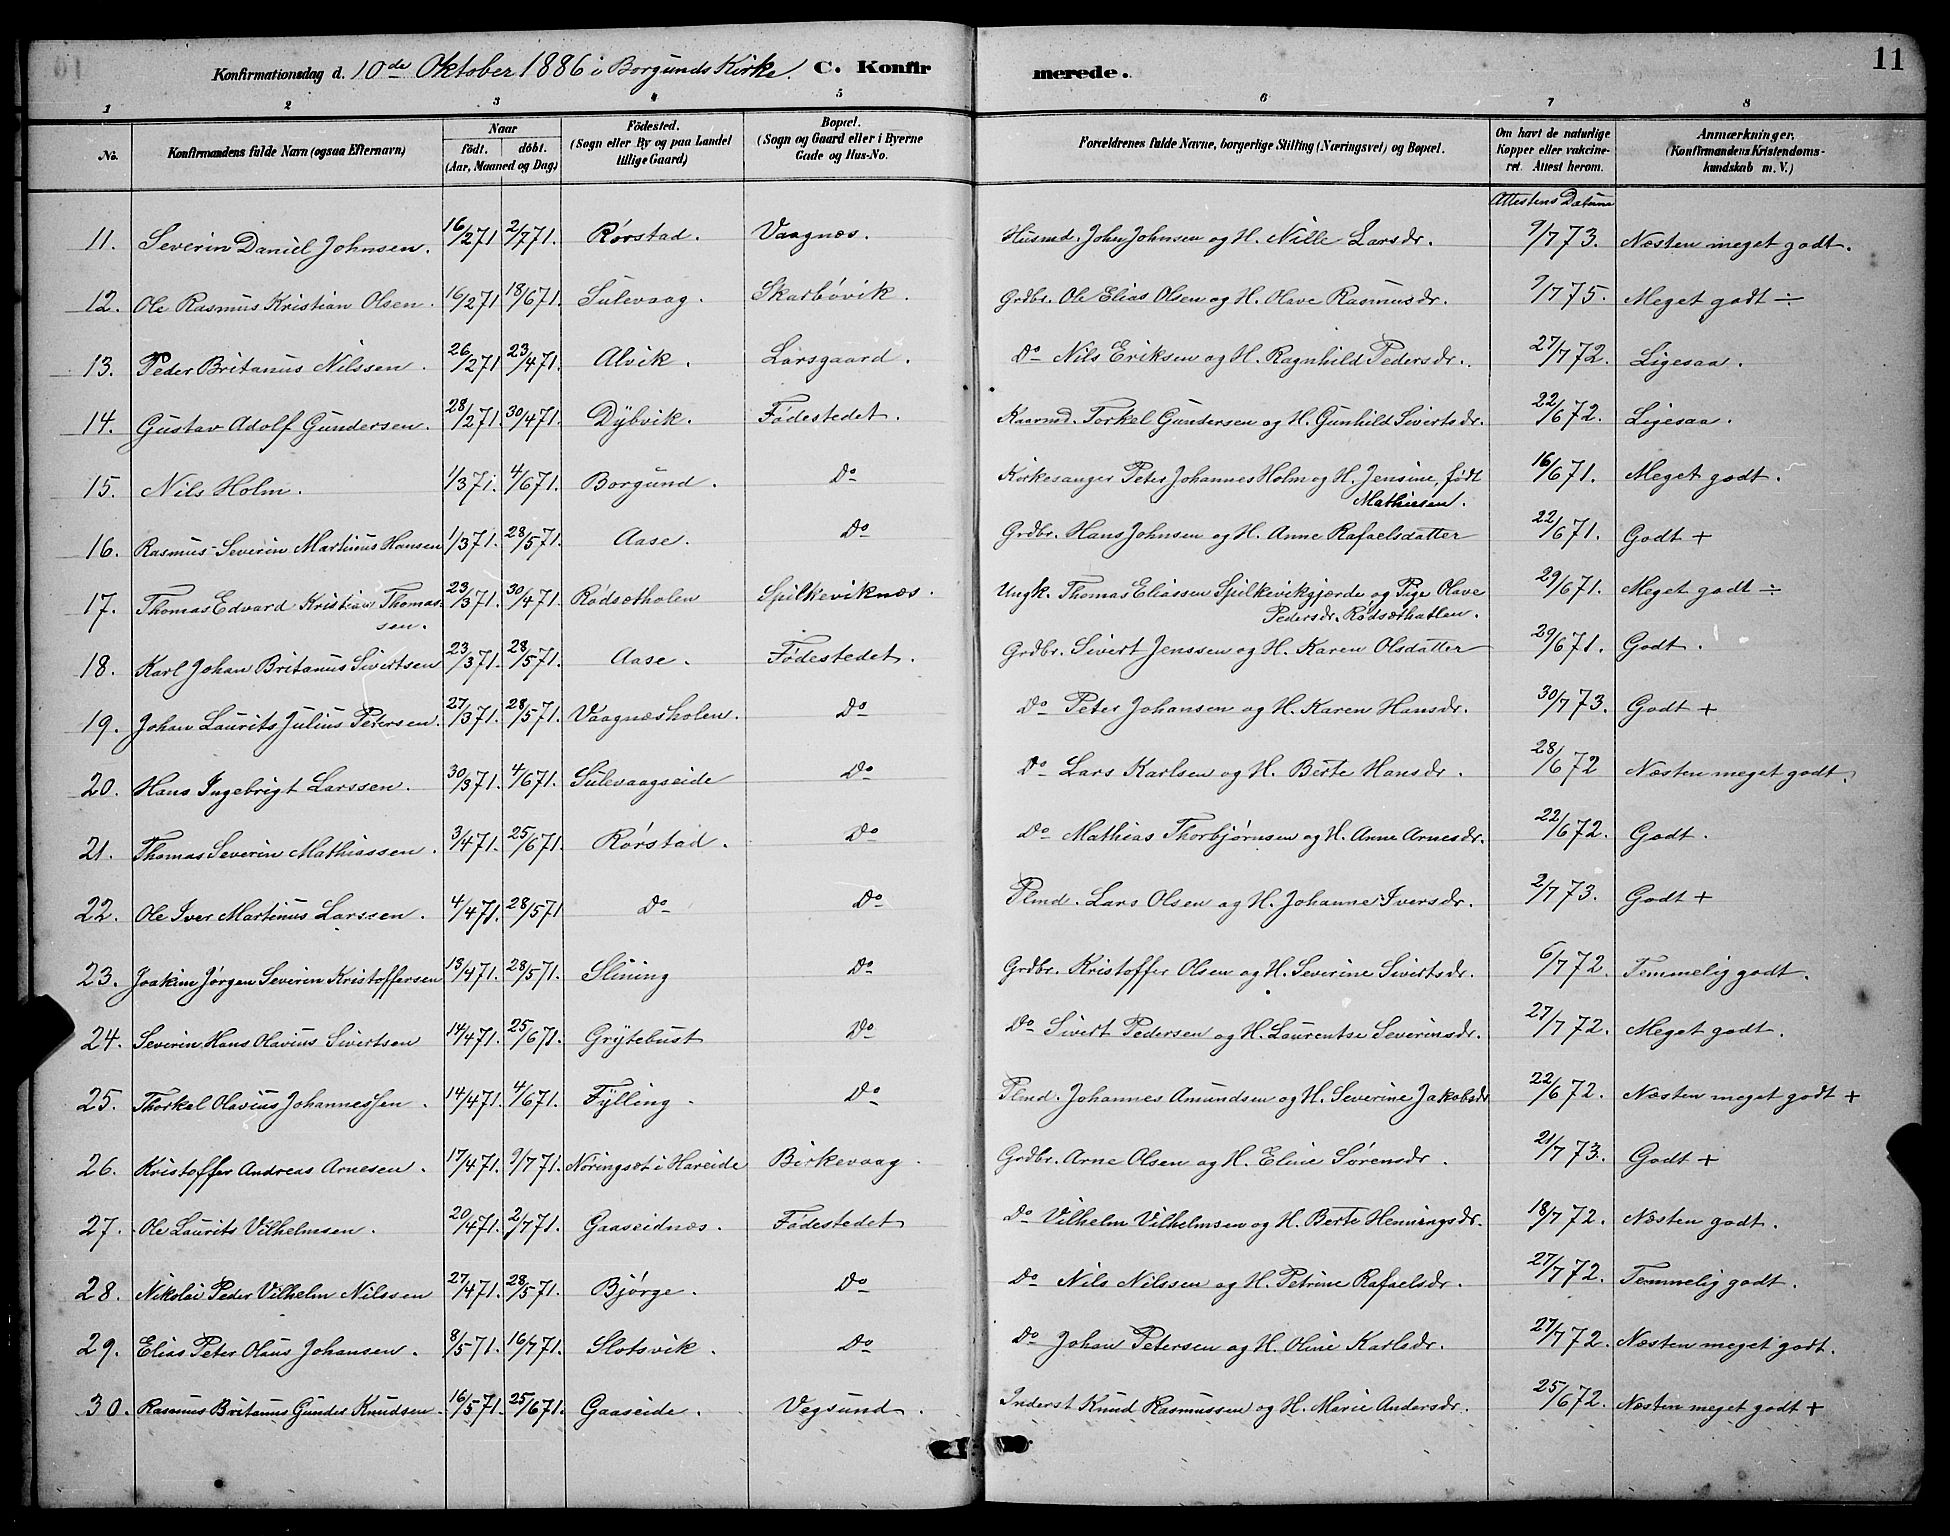 Konfirmationsdag d. 10de Oktober 1886 i Borgunds Kirke. C. Konfirmerede. 11
1 2 3 4 5 6 7 8
No. Konfirmandens fulde Navn (ogsaa Efternavn) Naar födt. döbt. (Aar, Maaned og Dag) Födested. (Sogn eller By og paa Landet tillige Gaard) Bopæl. (Sogn og Gaard eller i Byerne Gade og Hus-No. Forældrenes fulde Navne, borgerlige Stilling (Næringsvei) og Bopæl. Om havt de naturlige Kopper eller vakcineret. Attest herom. Anmærkninger. (Konfirmandens Kristendomskundskab m. V.)
Attestens Datum
11. Severin Daniel Johnsen. 16/2 71 2/7 71. Rörstad. Vaagnæs. Husmd. John Johnsen og H. Nille Larsdr. 9/7 73. Næsten meget godt.
12. Ole Rasmus Kristian Olsen. 16/2 71 18/6 71. Sulevaag. Skarbövik. Grdbr. Ole Elias Olsen og H. Olave Rasmusdr. 9/7 75. Meget godt ÷
13. Peder Britanus Nilssen. 26/2 71 23/4 71. Alvik. Larsgaard. Do Nils Eriksen og H. Ragnhild Pedersdr. 27/7 72. Ligesaa.
14. Gustav Adolf Gundersen. 28/2 71. 30/4 71. Dybvik. Födestedet. Kaarmd. Torkel Gundersen og H. Gunhild Sivertsdr. 22/6 72. Ligesaa.
15. Nils Holm. 1/3 71. 4/6 71. Borgund. Do Kirkesanger Peter Johannes Holm og H. Jensine, født Mathiesen. 16/6 71. Meget godt.
16. Rasmus Severin Martinus Hansen 1/3 71. 28/5 71. Aase. Do Grdbr. Hans Johnsen og H. Anne Rafaelsdatter 22/6 71. Godt +
17. Thomas Edvard Kristian Thomassen. 23/3 71. 30/4 71. Rödsætholen Spilkeviknæs. Ungk. Thomas Eliassen Spilkevikgjerde og Pige Olave Pedersdr. Rödsæthatlen. 29/6 71. Meget godt ÷
18. Karl Johan Britanus Sivertsen 23/3 71. 28/5 71. Aase. Födestedet. Grdbr. Sivert Jenssen og H. Karen Olsdatter 29/6 71. Godt.
19. Johan Laurits Julius Petersen. 27/3 71. 28/5 71. Vaagnæsholen. Do Do Peter Johansen og H. Karen Hansdr. 30/7 73. Godt +
20. Hans Ingebrigt Larssen. 30/3 71. 4/6 71. Sulevaagseide Do Do Lars Karlsen og H. Berte Hansdr. 28/6 72 Næsten meget godt.
21. Thomas Severin Mathiassen. 3/4 71. 25/6 71. Rörstad. Do Do Mathias Thorbjørnsen og H. Anne Arnesdr. 22/6 72. Godt.
22. Ole Iver Martinus Larssen. 4/4 71. 28/5 71 Do Do Plmd. Lars Olsen og H. Johanne Iversdr. 2/7 73. Godt +
23. Joakim Jörgen Severin Kristoffersen 13/4 71. 28/5 71. Slining Do Grdbr. Kristoffer Olsen og H. Severine Sivertsdr. 6/7 72. Temmelig godt.
24. Severin Hans Olavius Sivertsen 14/4 71. 25/6 71. Grytebust Do Do Sivert Pedersen og H. Laurentse Severinsdr. 27/7 72. Meget godt.
25. Thorkel Olavius Johannessen. 14/4 71. 4/6 71. Fylling. Do Plmd. Johannes Amundsen og H. Severine Jakobsdr 22/6 72. Næsten meget godt +
26. Kristoffer Andreas Arnesen. 17/4 71. 9/7 71. Noringset i Hareide Birkevaag Grdbr. Arne Olsen og H. Eline Sörensdr. 21/7 73. Godt +
27. Ole Laurits Vilhelmsen. 20/4 71. 2/7 71. Gaaseidnæs. Födestedet Do Vilhelm Vilhelmsen og H. Berte Henningsdr. 18/7 72. Næsten godt.
28. Nikolai Peder Vilhelm Nilssen 27/4 71. 28/5 71. Bjørge. Do Do Nils Nilssen og H. Petrine Rafaelsdr. 27/7 72. Temmelig godt.
29. Elias Peter Olaus Johansen. 8/5 71. 16/7 71. Slotsvik. Do Do Johan Petersen og H. Oline Karlsdr. 27/7 72. Næsten meget godt.
30. Rasmus Britanus Gunder Knudsen. 16/5 71. 25/6 71. Gaaseide. Vegsund. Inderst Knud Rasmussen og H. Marie Andersdr. 25/6 72. Næsten meget godt +